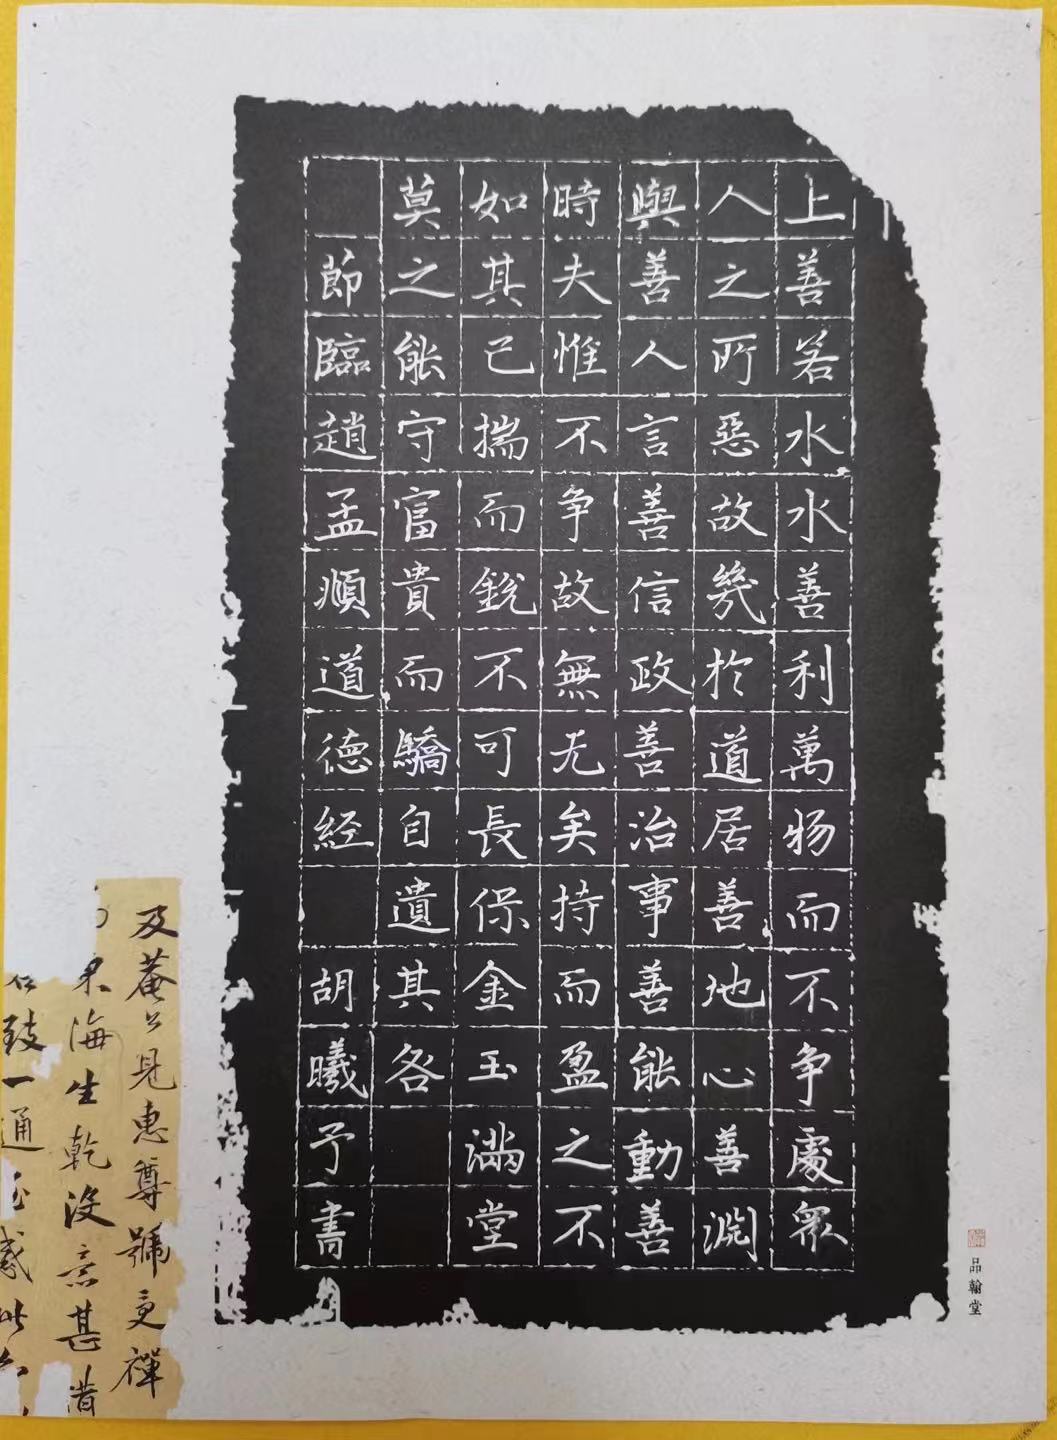 上善若水水善利萬物而不争處衆
人之所惡故幾於道居善地心善淵
與善人言善信政善治事善能動善
時夫惟不争故無无矣持而盈之不
如其已揣而銳不可長保金玉滿堂
莫之能守富貴而驕自遺其各
節臨趙孟頫道德經 胡曦予書
品翰堂
及菴公見惠尊號更禪
海生乾没意甚
致一通至感此